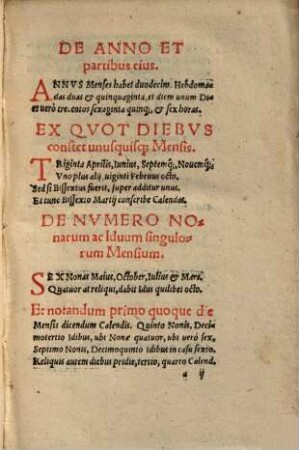 DE ANNO ET
partibus eius.
ANNVS Menses habet duodecim. Hebdoman
das duas & quinquaginta, et diem unum Di
es uerò trecentos sexaginta quinq;, & sex horas.
EX QVOT DIEBVS
constet unusquisq; Mensis.
TRiginta Aprilis, Iunius, Septemq;, Nouemq;,
Vno plus alij, uiginti Februus octo,
Sed si Bissextus fuerit, super additur unus.
Et tunc Bissexto Martij conscribe Calendas.
DE NVMERO NO-
narum ac Iduum singulo-
rum Mensium.
SEX Nonas Maius, October, Iulius & Mars.
Quatuor at reliqui, dabit Idus quilibet octo.
Et notandum primo quoque die
Mensis dicendum Calendis. Quinto Nonis, Deci
motertio Idibus, ubi Nonæ quatuor, ubi uerò sex,
Septimo Nonis, Decimoquinto idibus in casu sexto.
Reliquis autem diebus pridie, tertio, quarto Calend.
a ij